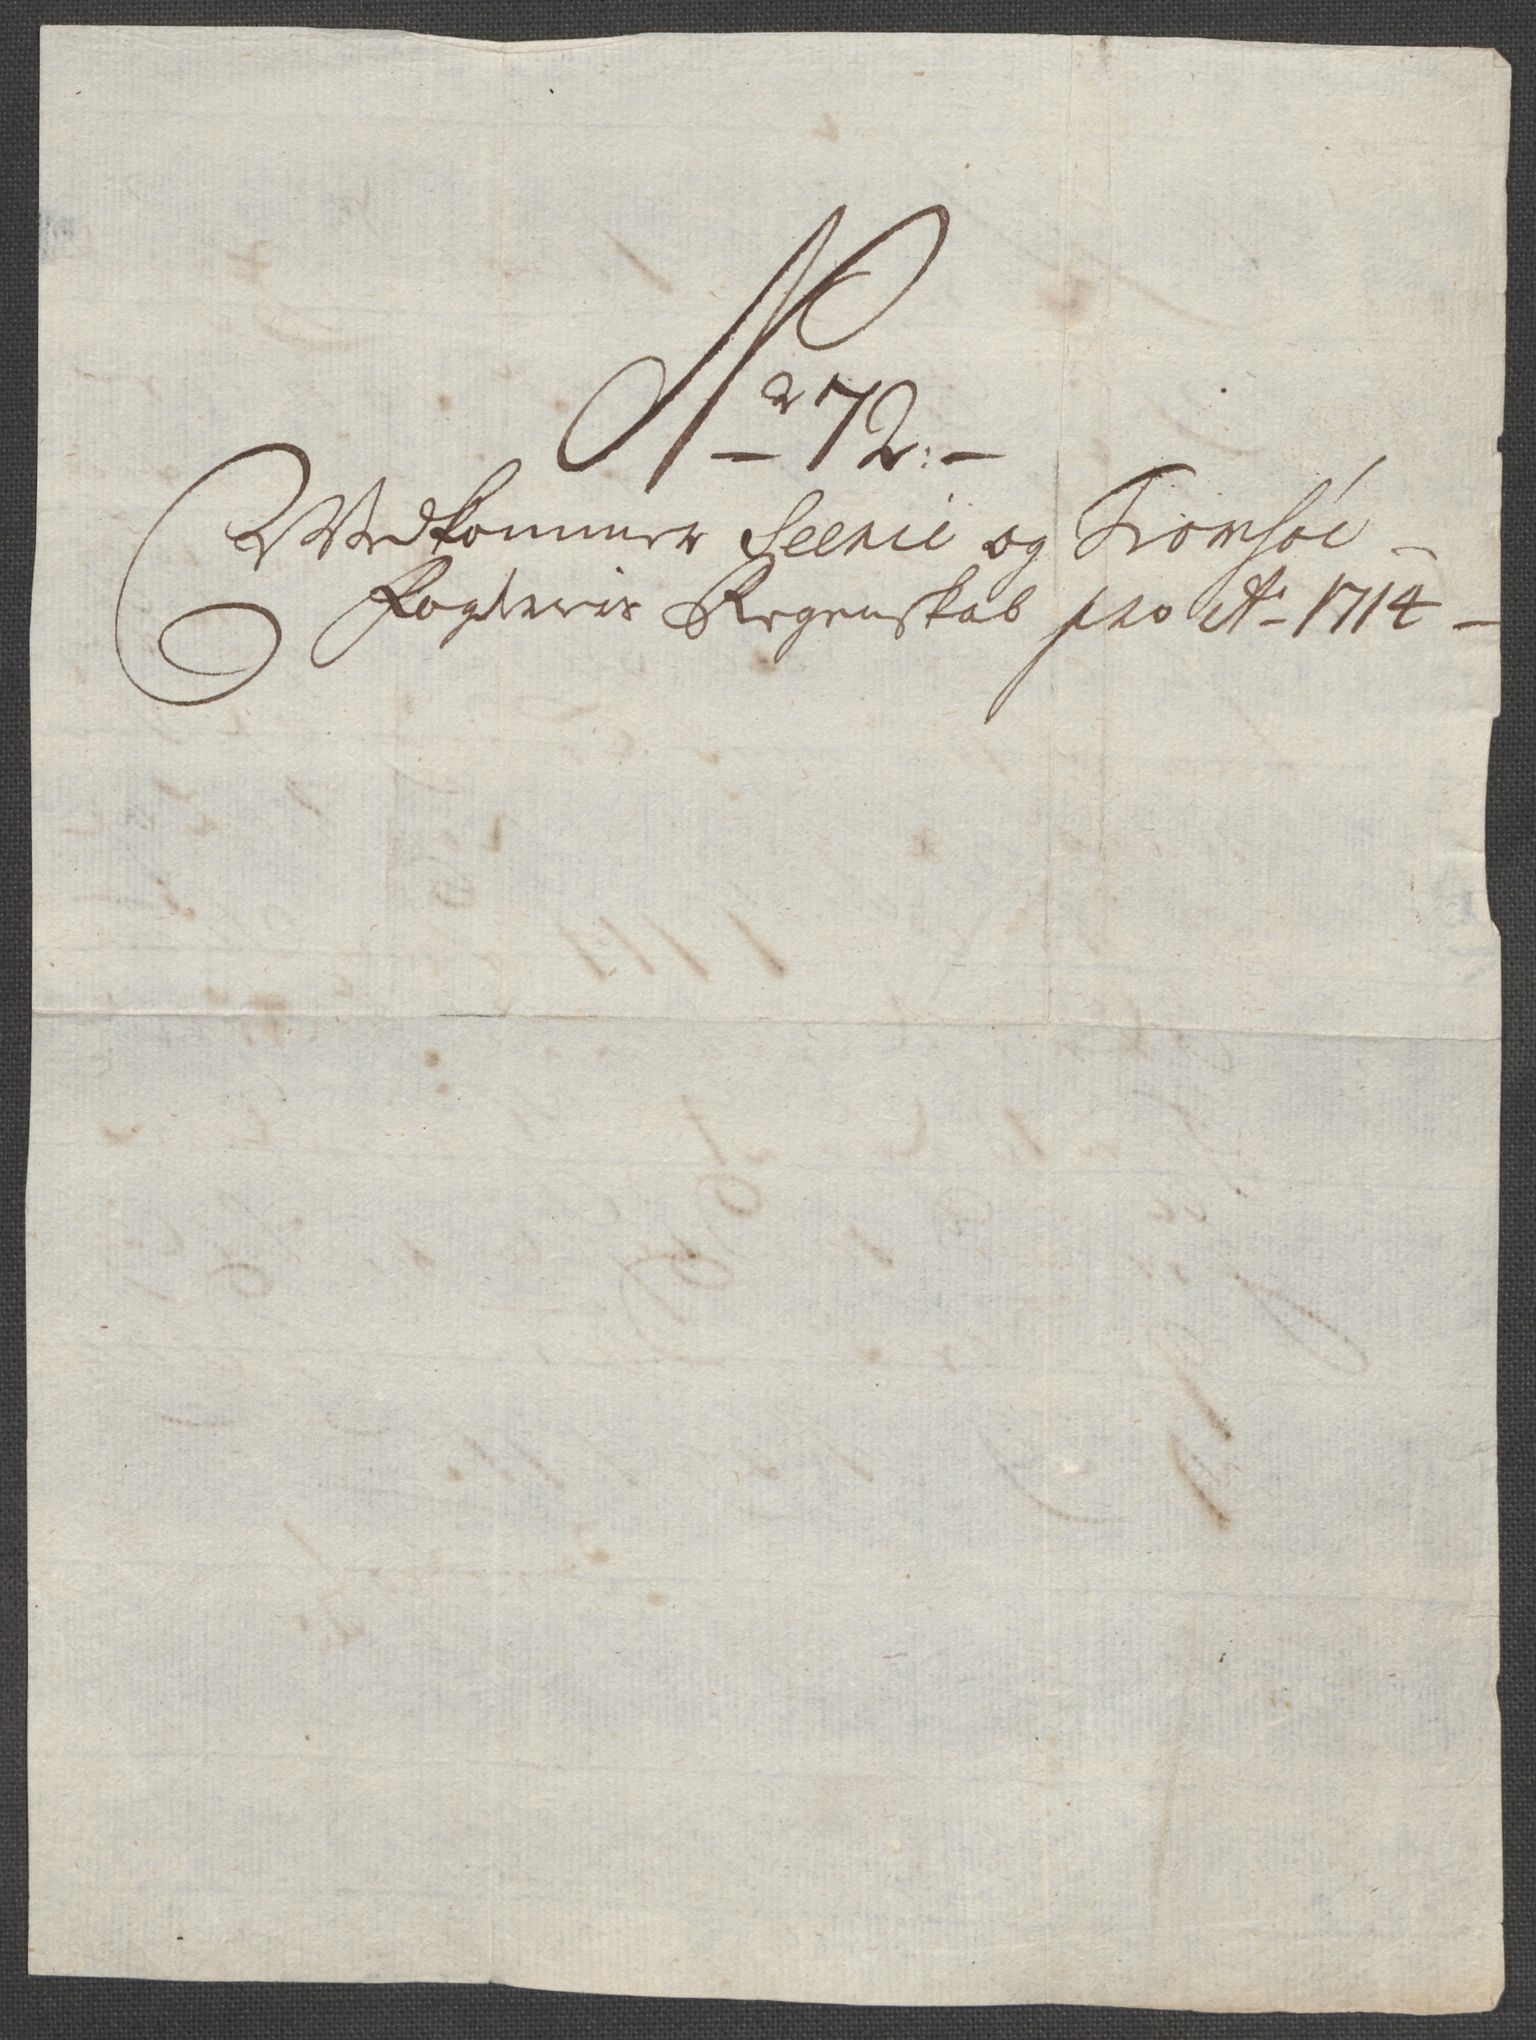 No 72:-
Vedkommer Seenie og Tromsøe -
Fogderies Regenskab pro Ao 1714 -